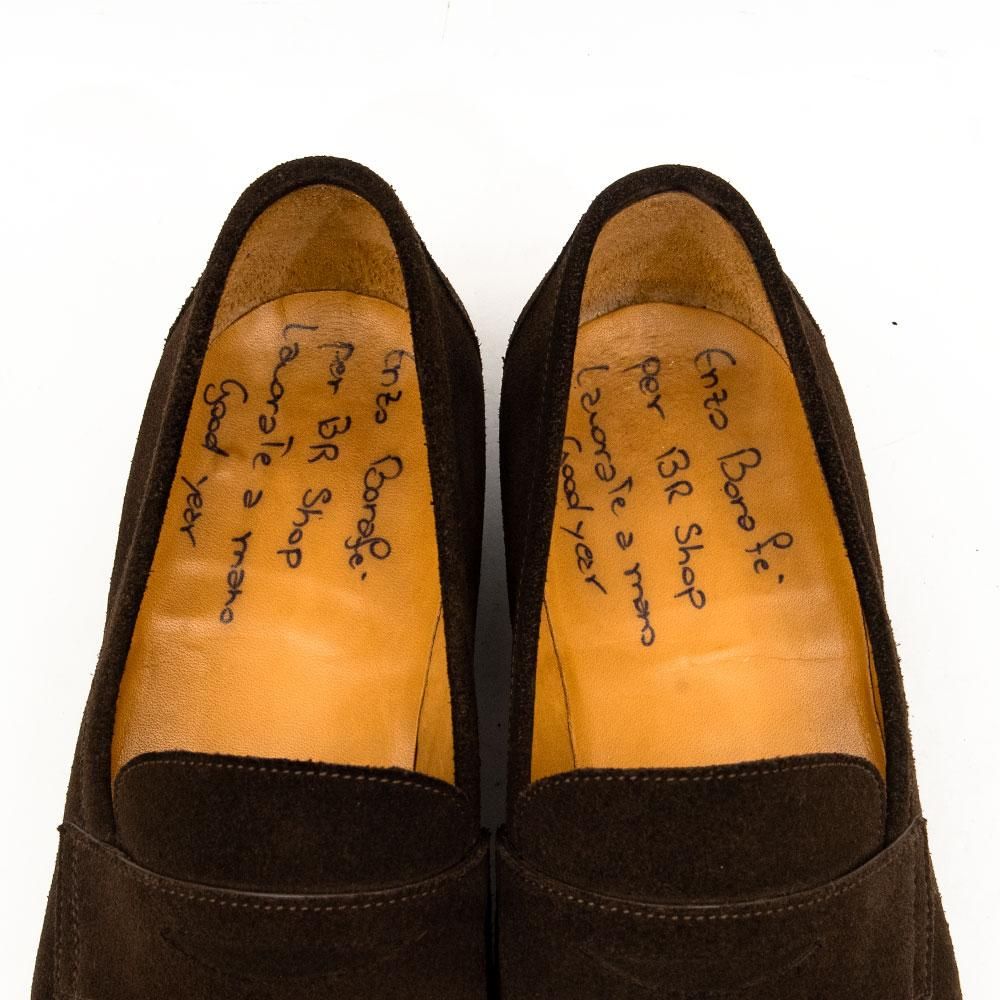 Enzo Bonafè.
per BR Shop
Lavorate a mano
Good year
Enzo Bonafè.
per BR Shop
Lavorate a mano
Good year